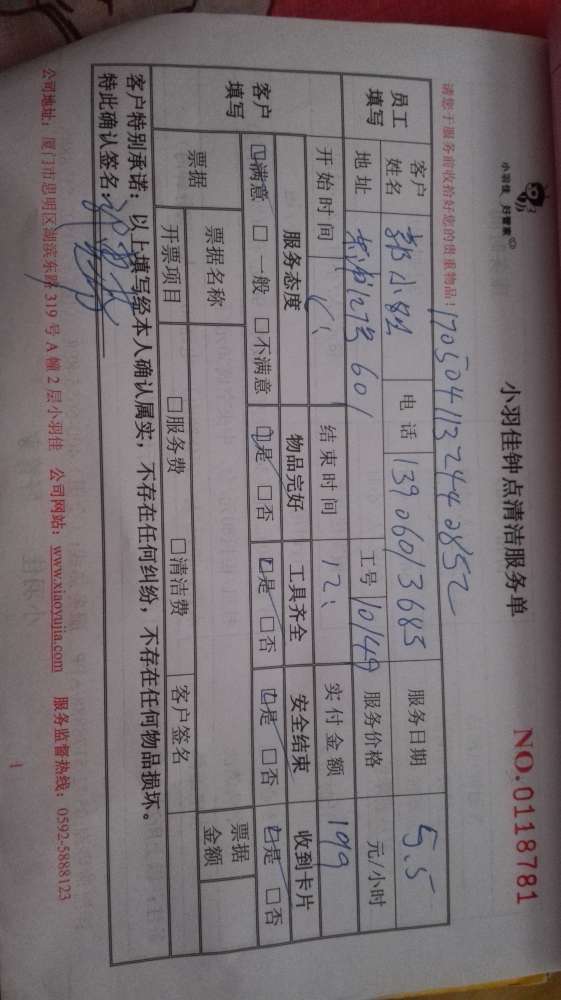 小羽佳 好管家
小羽佳钟点清洁服务单
NO.0118781
请您于服务前收拾好您的贵重物品!
1705041132442852
员工填写
客户姓名 郭小姐 电话 13906013685 服务日期 5.5
地址 601 工号 10149 服务价格 元/小时
开始时间 结束时间 12、 实付金额 199
客户填写
服务态度 物品完好 工具齐全 安全结束 收到卡片
☑满意 □一般 □不满意 ☑是 □否 ☑是 □否 ☑是 □否 ☑是 □否
票据 票据名称 票据金额
开票项目 □服务费 □清洁费 客户签名
客户特别承诺:以上填写经本人确认属实,不存在任何纠纷,不存在任何物品损坏。
特此确认签名:
公司地址:厦门市思明区湖滨东路319号A幢2层小羽佳 公司网站:www.xiaoyujia.com 服务监督热线:0592-5888123